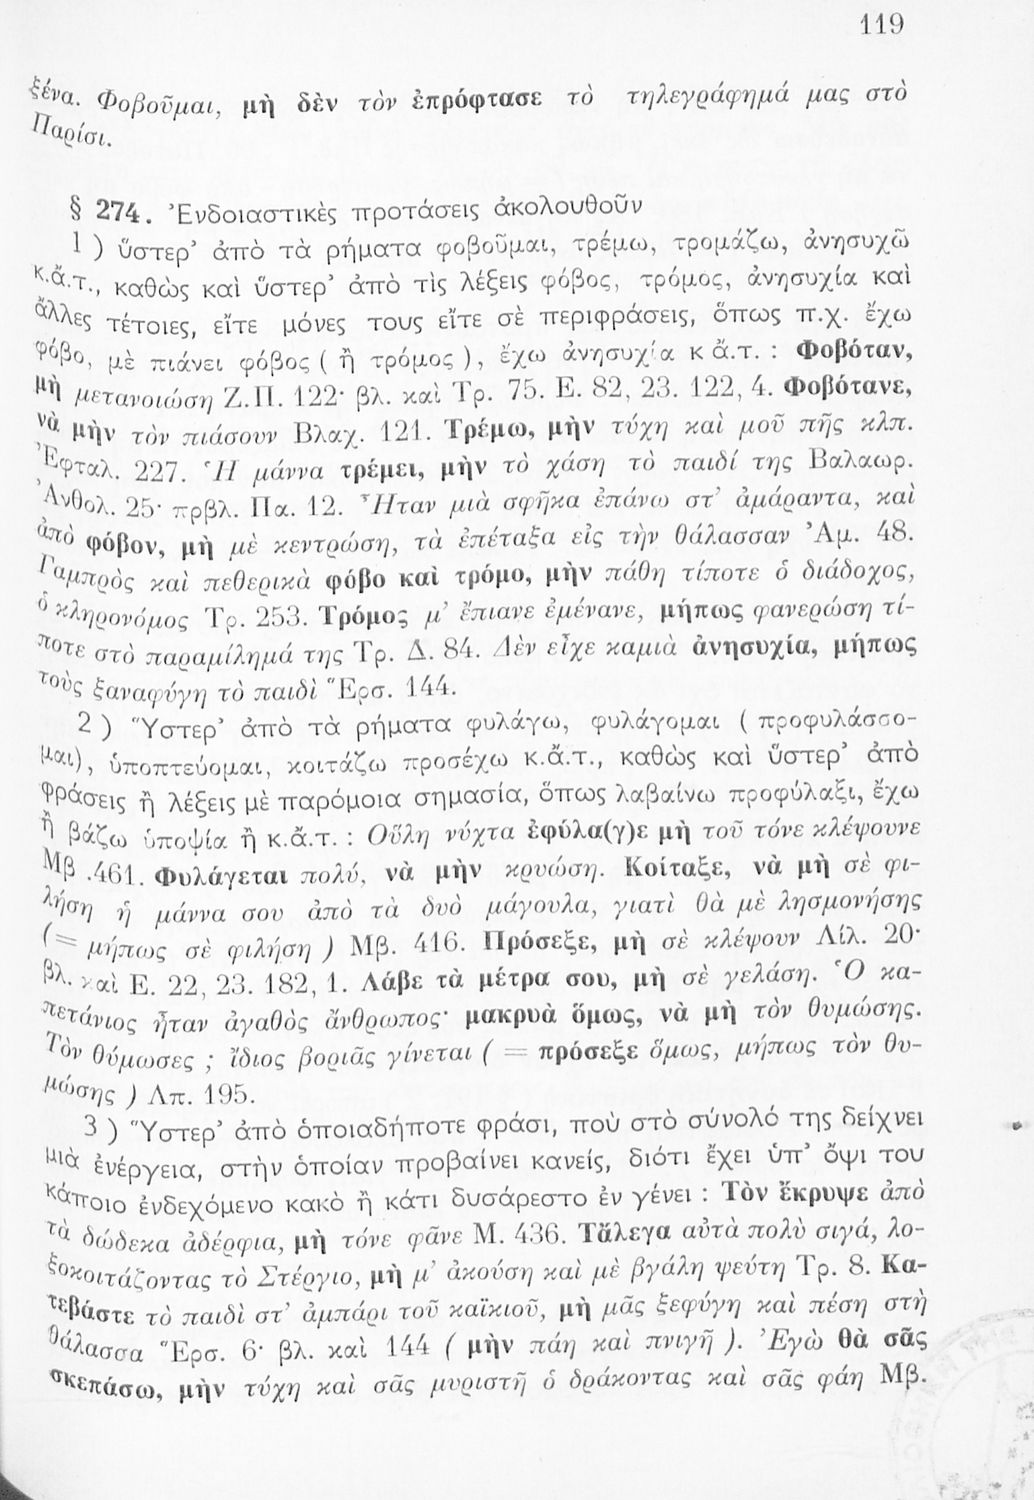 119
ξένα. Φοβοῦμαι, μὴ δὲν τὸν ἐπρόφτασε τὸ τηλεγράφημά μας στὸ
Παρίσι.
§ 274. Ἐνδοιαστικὲς προτάσεις ἀκολουθοῦν
1 ) ὕστερ᾿ ἀπὸ τὰ ρήματα φοβοῦμαι, τρέμω, τρομάζω, ἀνησυχῶ
κ.ἄ.τ., καθὼς καὶ ὕστερ᾿ ἀπὸ τὶς λέξεις φόβος, τρόμος, ἀνησυχία καὶ
ἄλλες τέτοιες, εἴτε μόνες τους εἴτε σὲ περιφράσεις, ὅπως π.χ. ἔχω
φόβο, μὲ πιάνει φόβος ( ἢ τρόμος ), ἔχω ἀνησυχία κ ἄ.τ. : Φοβόταν,
μὴ μετανοιώση Ζ.Π. 122· βλ. καὶ Τρ. 75. Ε. 82, 23. 122, 4. Φοβότανε,
νὰ μὴν τὸν πιάσουν Βλαχ. 121. Τρέμω, μὴν τύχη καὶ μοῦ πῆς κλπ.
Ἐφταλ. 227. Ἡ μάννα τρέμει, μὴν τὸ χάση τὸ παιδί της Βαλαωρ.
Ἀνθολ. 25· πρβλ. Πα. 12. Ἦταν μιὰ σφῆκα ἐπάνω στ᾿ ἀμάραντα, καὶ
ἀπὸ φόβον, μὴ μὲ κεντρώση, τὰ ἐπέταξα εἰς τὴν θάλασσαν Ἀμ. 48.
Γαμπρὸς καὶ πεθερικὰ φόβο καὶ τρόμο, μὴν πάθη τίποτε ὁ διάδοχος,
ὁ κληρονόμος Τρ. 253. Τρόμος μ᾿ ἔπιανε ἐμένανε, μήπως φανερώση τί-
ποτε στὸ παραμίλημά της Τρ. Δ. 84. Δὲν εἶχε καμιὰ ἀνησυχία, μήπως
τοὺς ξαναφύγη τὸ παιδὶ Ἔρσ. 144.
2 ) Ὕστερ᾿ ἀπὸ τὰ ρήματα φυλάγω, φυλάγομαι ( προφυλάσσο-
μαι), ὑποπτεύομαι, κοιτάζω προσέχω κ.ἄ.τ., καθὼς καὶ ὕστερ᾿ ἀπὸ
φράσεις ἢ λέξεις μὲ παρόμοια σημασία, ὅπως λαβαίνω προφύλαξι, ἔχω
ἢ βάζω ὑποψία ἢ κ.ἄ.τ. : Οὕλη νύχτα ἐφύλα(γ)ε μὴ τοῦ τόνε κλέψουνε
Μβ .461. Φυλάγεται πολύ, νὰ μὴν κρυώση. Κοίταξε, νὰ μὴ σὲ φι-
λήση ἡ μάννα σου ἀπὸ τὰ δυὸ μάγουλα, γιατὶ θὰ μὲ λησμονήσης
(= μήπως σὲ φιλήση ) Μβ. 416. Πρόσεξε, μὴ σὲ κλέψουν Λίλ. 20·
βλ. καὶ Ε. 22, 23. 182, 1. Λάβε τὰ μέτρα σου, μὴ σὲ γελάση. Ὁ κα-
πετάνιος ἦταν ἀγαθὸς ἄνθρωπος· μακρυὰ ὅμως, νὰ μὴ τὸν θυμώσης.
Τὸν θύμωσες ; ἴδιος βοριᾶς γίνεται ( = πρόσεξε ὅμως, μήπως τὸν θυ-
μώσης ) Λπ. 195.
3 ) Ὕστερ᾿ ἀπὸ ὁποιαδήποτε φράσι, ποὺ στὸ σύνολό της δείχνει
μιὰ ἐνέργεια, στὴν ὁποίαν προβαίνει κανείς, διότι ἔχει ὑπ᾿ ὄψι του
κάποιο ἐνδεχόμενο κακὸ ἢ κάτι δυσάρεστο ἐν γένει : Τὸν ἔκρυψε ἀπὸ
τὰ δώδεκα ἀδέρφια, μὴ τόνε φᾶνε Μ. 436. Τἄλεγα αὐτὰ πολὺ σιγά, λο-
ξοκοιτάζοντας τὸ Στέργιο, μὴ μ᾿ ἀκούση καὶ μὲ βγάλη ψεύτη Τρ. 8. Κα-
τεβάστε τὸ παιδὶ στ᾿ ἀμπάρι τοῦ καϊκιοῦ, μὴ μᾶς ξεφύγη καὶ πέση στὴ
θάλασσα Ἔρσ. 6· βλ. καὶ 144 ( μὴν πάη καὶ πνιγῆ ). Ἐγὼ θὰ σᾶς
σκεπάσω, μὴν τύχη καὶ σᾶς μυριστῆ ὁ δράκοντας καὶ σᾶς φάη Μβ.